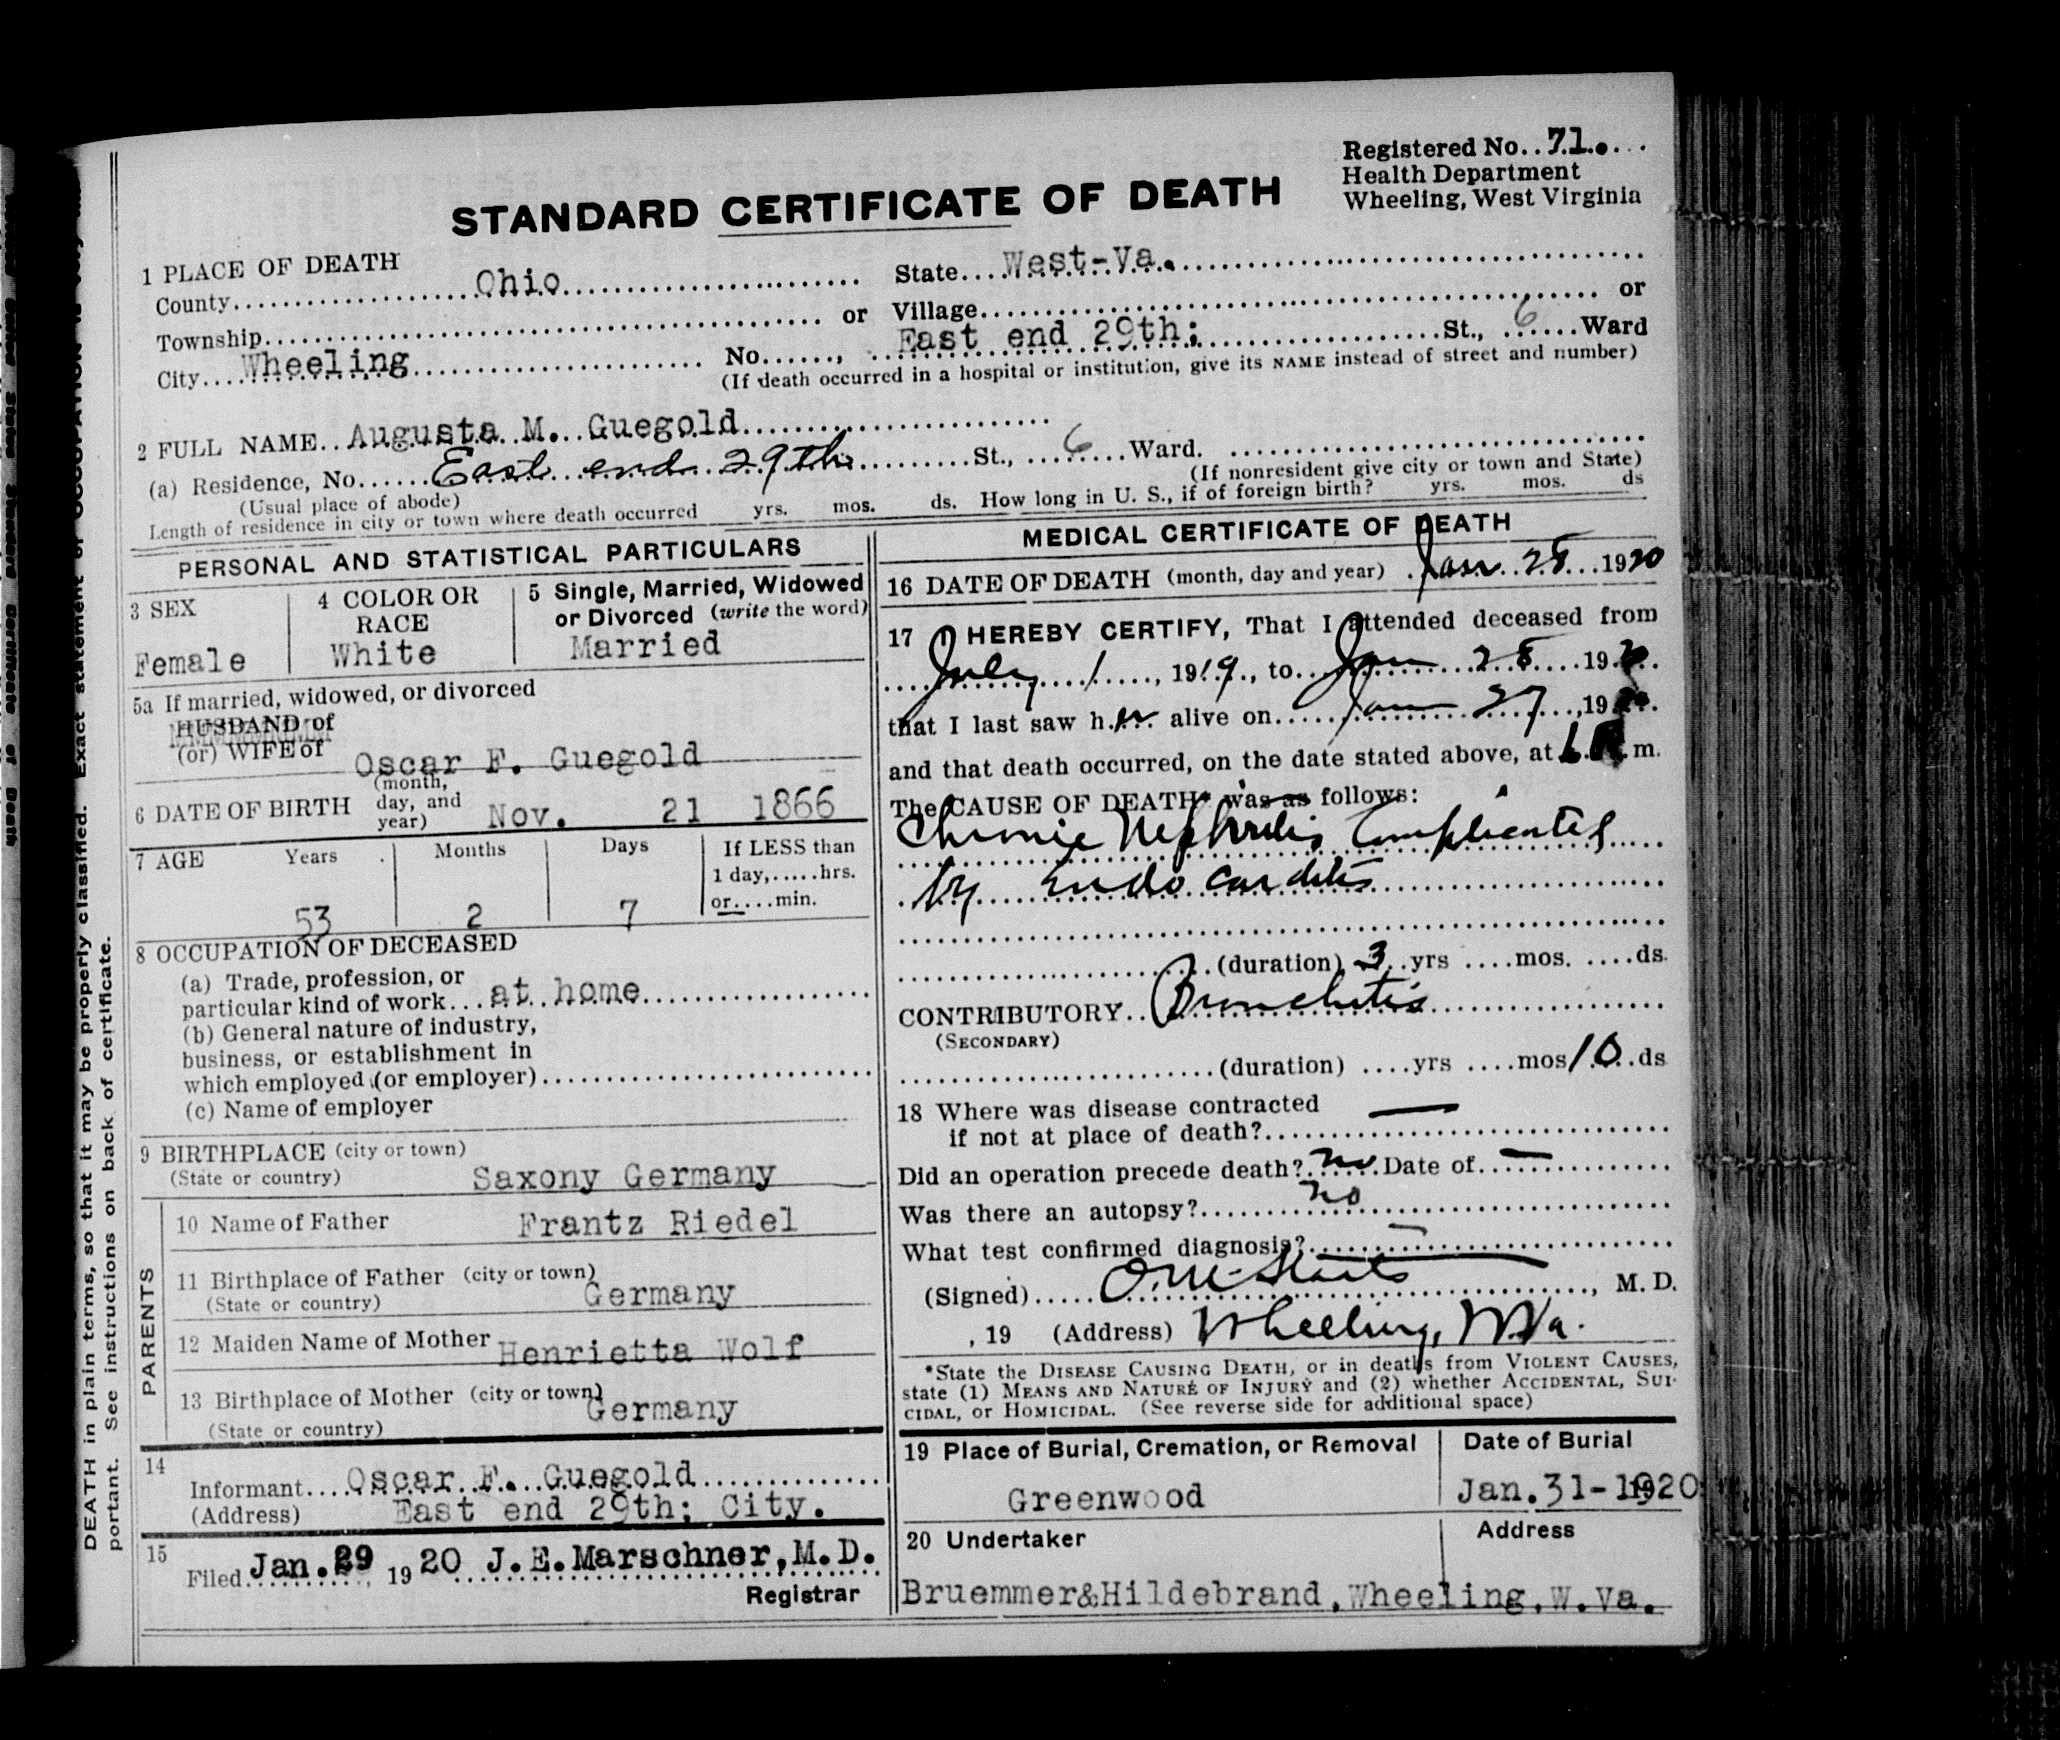 Registered No. 71.
Health Department
Wheeling, West Virginia
STANDARD CERTIFICATE OF DEATH
1 PLACE OF DEATH
County Ohio State West-Va.
Township or Village or
City Wheeling No. , East end 29th; St., 6 Ward
(If death occurred in a hospital or institution, give its NAME instead of street and number)
2 FULL NAME Augusta M. Guegold
(a) Residence, No. East end 29th St., 6 Ward.
(Usual place of abode) (If nonresident give city or town and State)
Length of residence in city or town where death occurred yrs. mos. ds. How long in U. S., if of foreign birth? yrs. mos. ds
PERSONAL AND STATISTICAL PARTICULARS
3 SEX
Female
4 COLOR OR RACE
White
5 Single, Married, Widowed
or Divorced (write the word)
Married
5a If married, widowed, or divorced
HUSBAND of
(or) WIFE of Oscar F. Guegold
6 DATE OF BIRTH (month, day, and year) Nov. 21 1866
7 AGE Years Months Days If LESS than
1 day,.....hrs.
or....min.
53 2 7
8 OCCUPATION OF DECEASED
(a) Trade, profession, or
particular kind of work at home
(b) General nature of industry,
business, or establishment in
which employed (or employer)
(c) Name of employer
9 BIRTHPLACE (city or town)
(State or country) Saxony Germany
PARENTS
10 Name of Father Frantz Riedel
11 Birthplace of Father (city or town)
(State or country) Germany
12 Maiden Name of Mother Henrietta Wolf
13 Birthplace of Mother (city or town)
(State or country) Germany
14
Informant Oscar F. Guegold
(Address) East end 29th; City.
15
Filed Jan. 29 1920 J.E.Marschner,M.D.
Registrar
MEDICAL CERTIFICATE OF DEATH
16 DATE OF DEATH (month, day and year) Jan 28 1920
17 I HEREBY CERTIFY, That I attended deceased from
July 1, 1919, to Jan 28 1920
that I last saw her alive on Jan 27, 1920
and that death occurred, on the date stated above, at m.
The CAUSE OF DEATH* was as follows:
Chronic Nephritis Complicated
by Endo carditis
(duration) 3 yrs mos. ds.
CONTRIBUTORY Bronchitis
(SECONDARY)
(duration) yrs mos 10 ds
18 Where was disease contracted —
if not at place of death?
Did an operation precede death? no Date of —
Was there an autopsy? no
What test confirmed diagnosis? —
(Signed) , M. D.
, 19 (Address) Wheeling, W.Va.
*State the DISEASE CAUSING DEATH, or in deaths from VIOLENT CAUSES,
state (1) MEANS AND NATURE OF INJURY and (2) whether ACCIDENTAL, SUI-
CIDAL, or HOMICIDAL. (See reverse side for additional space)
19 Place of Burial, Cremation, or Removal
Greenwood
Date of Burial
Jan.31-1920
20 Undertaker Address
Bruemmer&Hildebrand,Wheeling,W.Va.
DEATH in plain terms, so that it may be properly classified. Exact statement of OCCUPATION is
portant. See instructions on back of certificate.